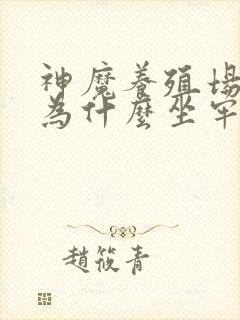 神魔養殖場
為什麼坐牢
趙筱青